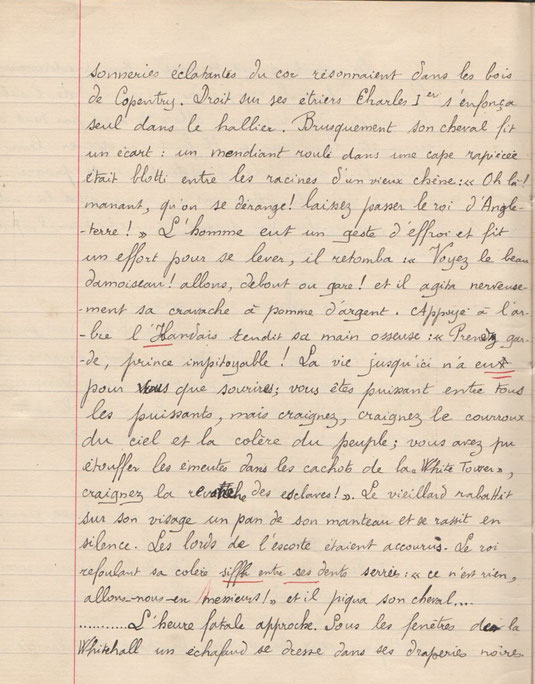 sonneries éclatantes du cor résonnaient dans les bois
de Copentry. Droit sur ses étriers Charles Ier s'enfonça
seul dans le hallier. Brusquement son cheval fit
un écart : un mendiant roulé dans une cape rapiécée
était blotti entre les racines d'un vieux chêne : « Oh là !
manant, qu'on se dérange ! laissez passer le roi d'Angle-
-terre ! » L'homme eut un geste d'effroi et fit
un effort pour se lever, il retomba : « Voyez le beau
damoiseau ! allons, debout ou gare ! et il agita nerveuse-
-ment sa cravache à pomme d'argent. Appuyé à l'ar-
-bre l'Handais tendit sa main osseuse : « Prenez gar-
-de, prince impitoyable ! La vie jusqu'ici n'a eu
pour vous que sourires ; vous êtes puissant entre tous
les puissants, mais craignez, craignez le courroux
du ciel et la colère du peuple ; vous avez pu
étouffer les émeutes dans les cachots de la « White Tower »,
craignez la revanche des esclaves ! ». Le vieillard rabattit
sur son visage un pan de son manteau et se rassit en
silence. Les lords de l'escorte étaient accourus. Le roi
refoulant sa colère siffla entre ses dents serrées : « ce n'est rien,
allons-nous-en messieurs ! » et il piqua son cheval....
............L'heure fatale approche. Sous les fenêtres de la
Whitehall un échafaud se dresse dans ses draperies noires